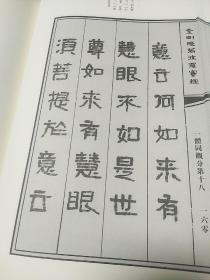 金剛般若波羅蜜經
一體同觀分第十八
一六零
意云何如來有
慧眼不如是世
尊如來有慧眼
須菩提於意云